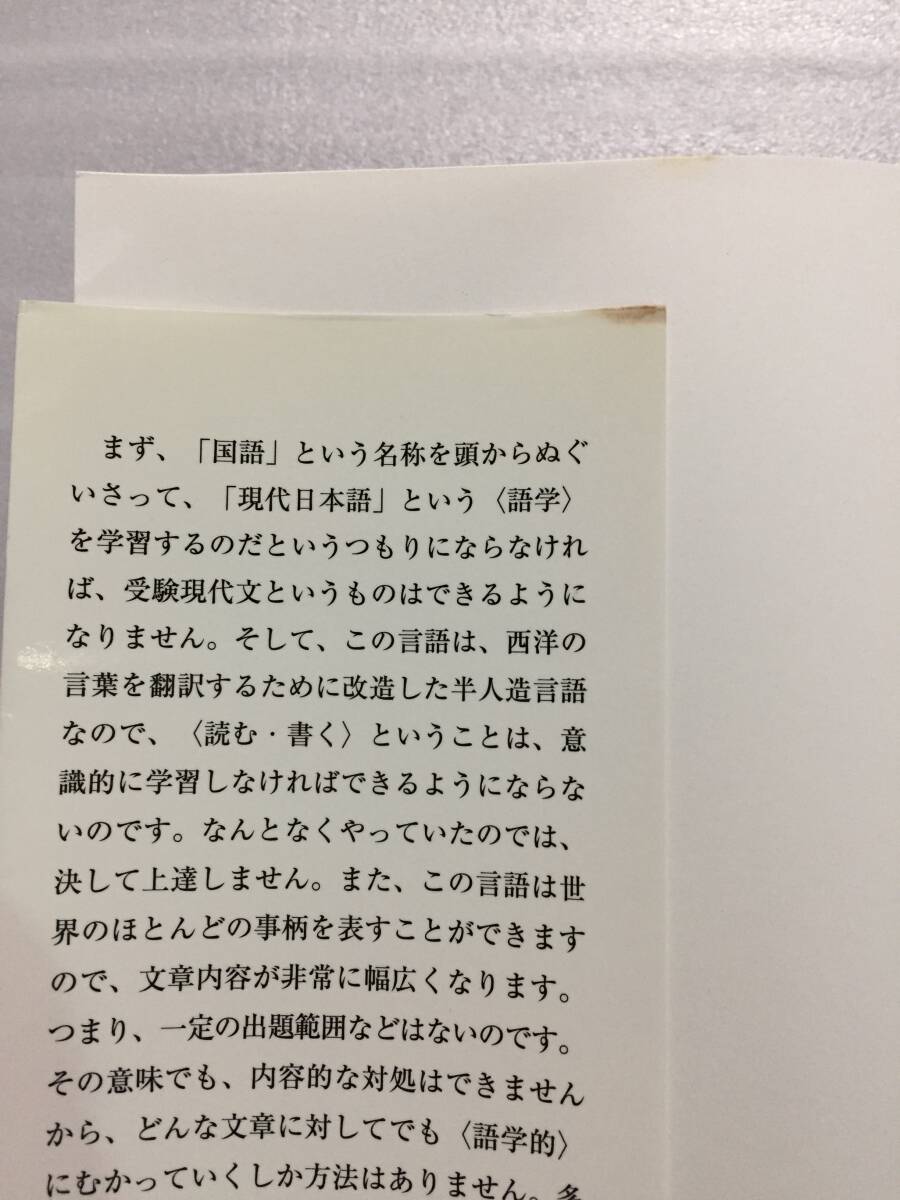 まず、「国語」という名称を頭からぬぐ
いさって、「現代日本語」という〈語学〉
を学習するのだというつもりにならなけれ
ば、受験現代文というものはできるように
なりません。そして、この言語は、西洋の
言葉を翻訳するために改造した半人造言語
なので、〈読む・書く〉ということは、意
識的に学習しなければできるようにならな
いのです。なんとなくやっていたのでは、
決して上達しません。また、この言語は世
界のほとんどの事柄を表すことができます
ので、文章内容が非常に幅広くなります。
つまり、一定の出題範囲などはないのです。
その意味でも、内容的な対処はできません
から、どんな文章に対してでも〈語学的〉
にむかっていくしか方法はありません。多